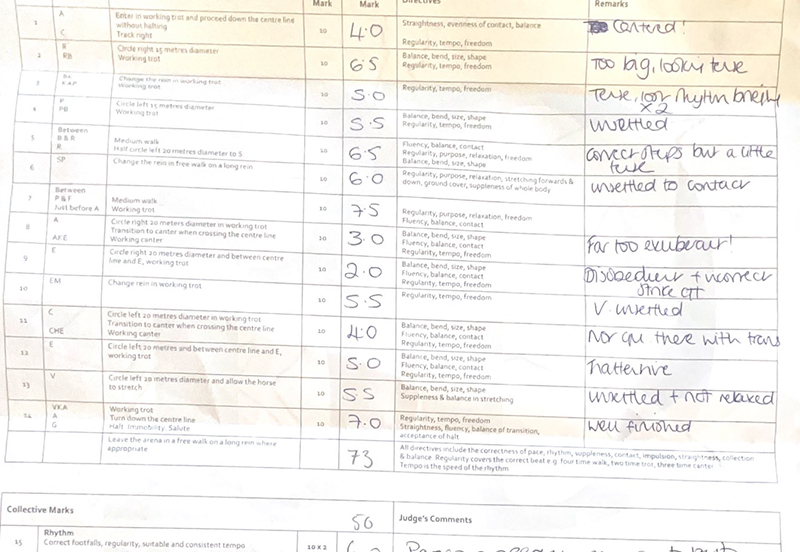 Mark Mark Directives Remarks
1 A Enter in working trot and proceed down the centre line 10 4.0 Straightness, evenness of contact, balance Cantered!
without halting
C Track right Regularity, tempo, freedom
2 B Circle right 15 metres diameter 10 6.5 Balance, bend, size, shape Too big, looky tense
RB Working trot Regularity, tempo, freedom
3 Change the rein in working trot 10 5.0 Regularity, tempo, freedom Tense, lost rhythm briefly
KAP Working trot x2
4 P Circle left 15 metres diameter 10 5.5 Balance, bend, size, shape unsettled
PB Working trot Regularity, tempo, freedom
5 Between
B & R Medium walk 10 6.5 Fluency, balance, contact correct steps but a little
R Half circle left 20 metres diameter to S Regularity, purpose, relaxation, freedom tense
Balance, bend, size, shape
6 SP Change the rein in free walk on a long rein 10 6.0 Regularity, purpose, relaxation, stretching forwards & unsettled to contact
down, ground cover, suppleness of whole body
7 Between
P & F Medium walk 10 7.5 Regularity, purpose, relaxation, freedom
Just before A Working trot Fluency, balance, contact
8 A Circle right 20 meters diameter in working trot 10 3.0 Balance, bend, size, shape Far too exuberant!
Transition to canter when crossing the centre line Fluency, balance, contact
AFE Working canter Regularity, tempo, freedom
9 E Circle right 20 metres diameter and between centre 10 2.0 Balance, bend, size, shape Disobedient + incorrect
line and E, working trot Fluency, balance, contact strike off
Regularity, tempo, freedom
10 EM Change rein in working trot 10 5.5 Regularity, tempo, freedom V. unsettled
11 C Circle left 20 metres diameter in working trot 10 4.0 Balance, bend, size, shape Not quite there with trans
Transition to canter when crossing the centre line Fluency, balance, contact
CHE Working canter Regularity, tempo, freedom
12 E Circle left 20 metres and between centre line and E, 10 5.0 Balance, bend, size, shape Inattentive
working trot Fluency, balance, contact
Regularity, tempo, freedom
13 V Circle left 20 metres diameter and allow the horse 10 5.5 Balance, bend, size, shape unsettled + not relaxed
to stretch Suppleness & balance in stretching
14 VKA Working trot 10 7.0 Regularity, tempo, freedom well finished
A Turn down the centre line Straightness, fluency, balance of transition,
G Halt. Immobility. Salute acceptance of halt
Leave the arena in a free walk on a long rein where 73 All directives include the correctness of pace, rhythm, suppleness, contact, impulsion, straightness, collection
appropriate & balance. Regularity covers the correct beat e.g. four time walk, two time trot, three time canter.
Tempo is the speed of the rhythm
Collective Marks 50 Judge's Comments
15 Rhythm
Correct footfalls, regularity, suitable and consistent tempo 10 x 2